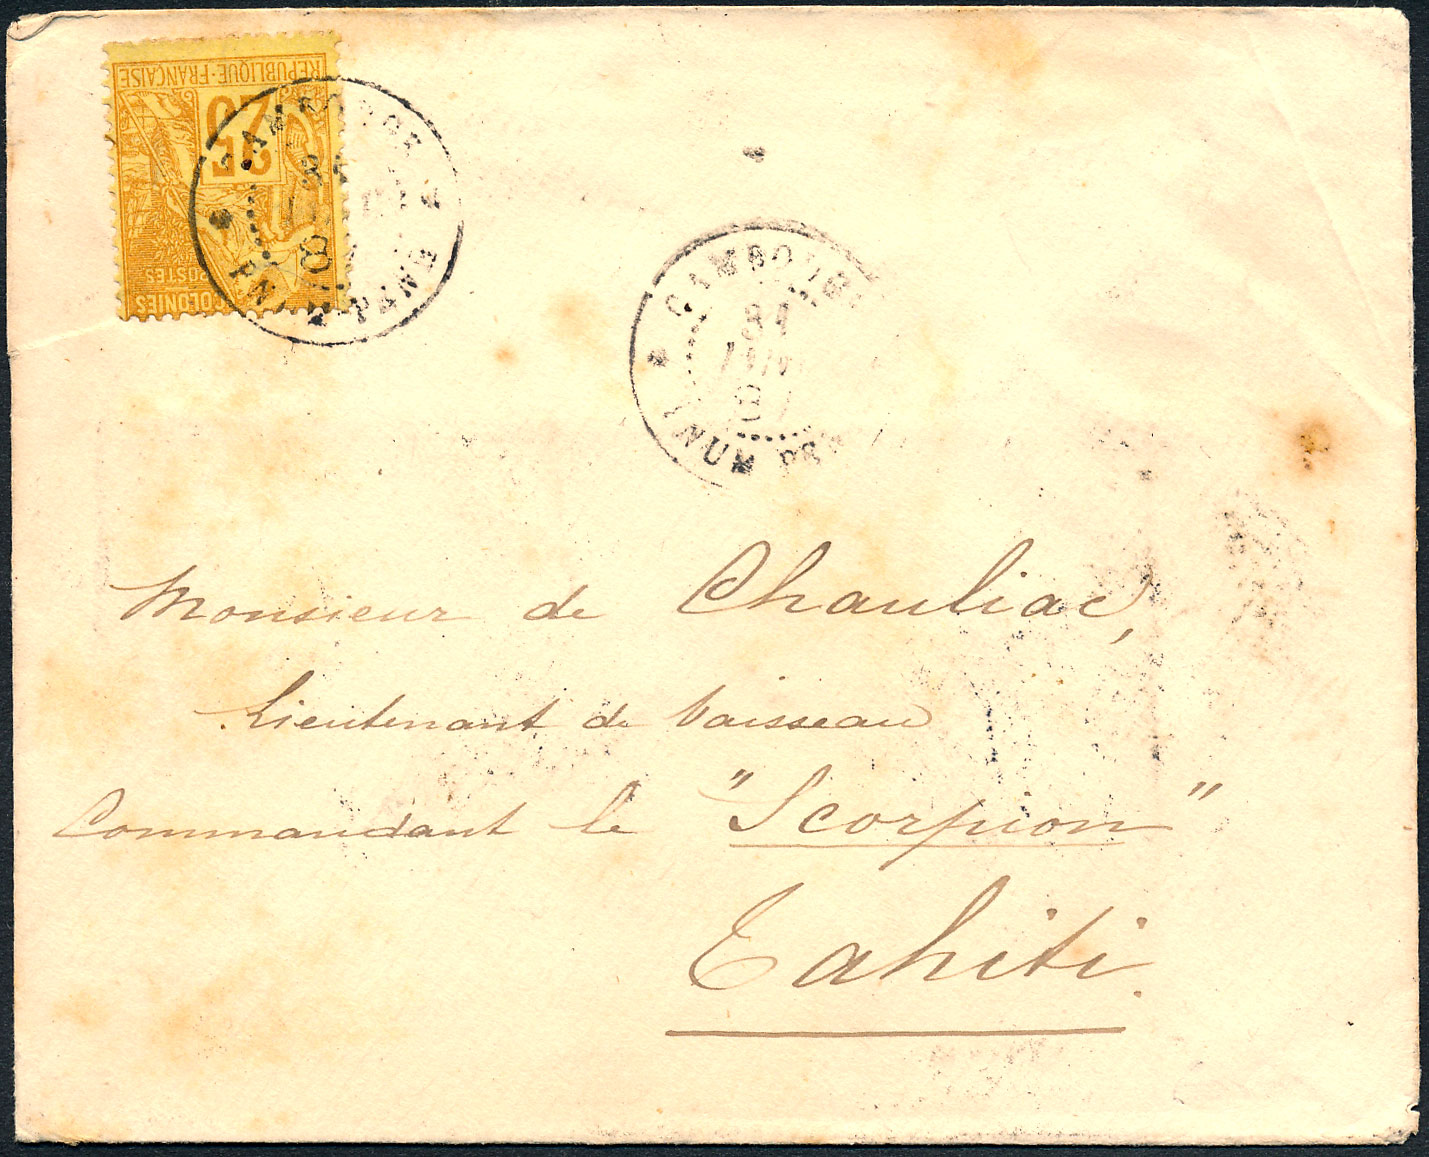 REPUBLIQUE-FRANÇAISE
25
POSTES
COLONIES
CAMBODGE
PNUM-PENH
CAMBODGE
31
PNUM PENH
Monsieur de Chauliac,
Lieutenant de Vaisseau
Commandant le "Scorpion"
Tahiti.